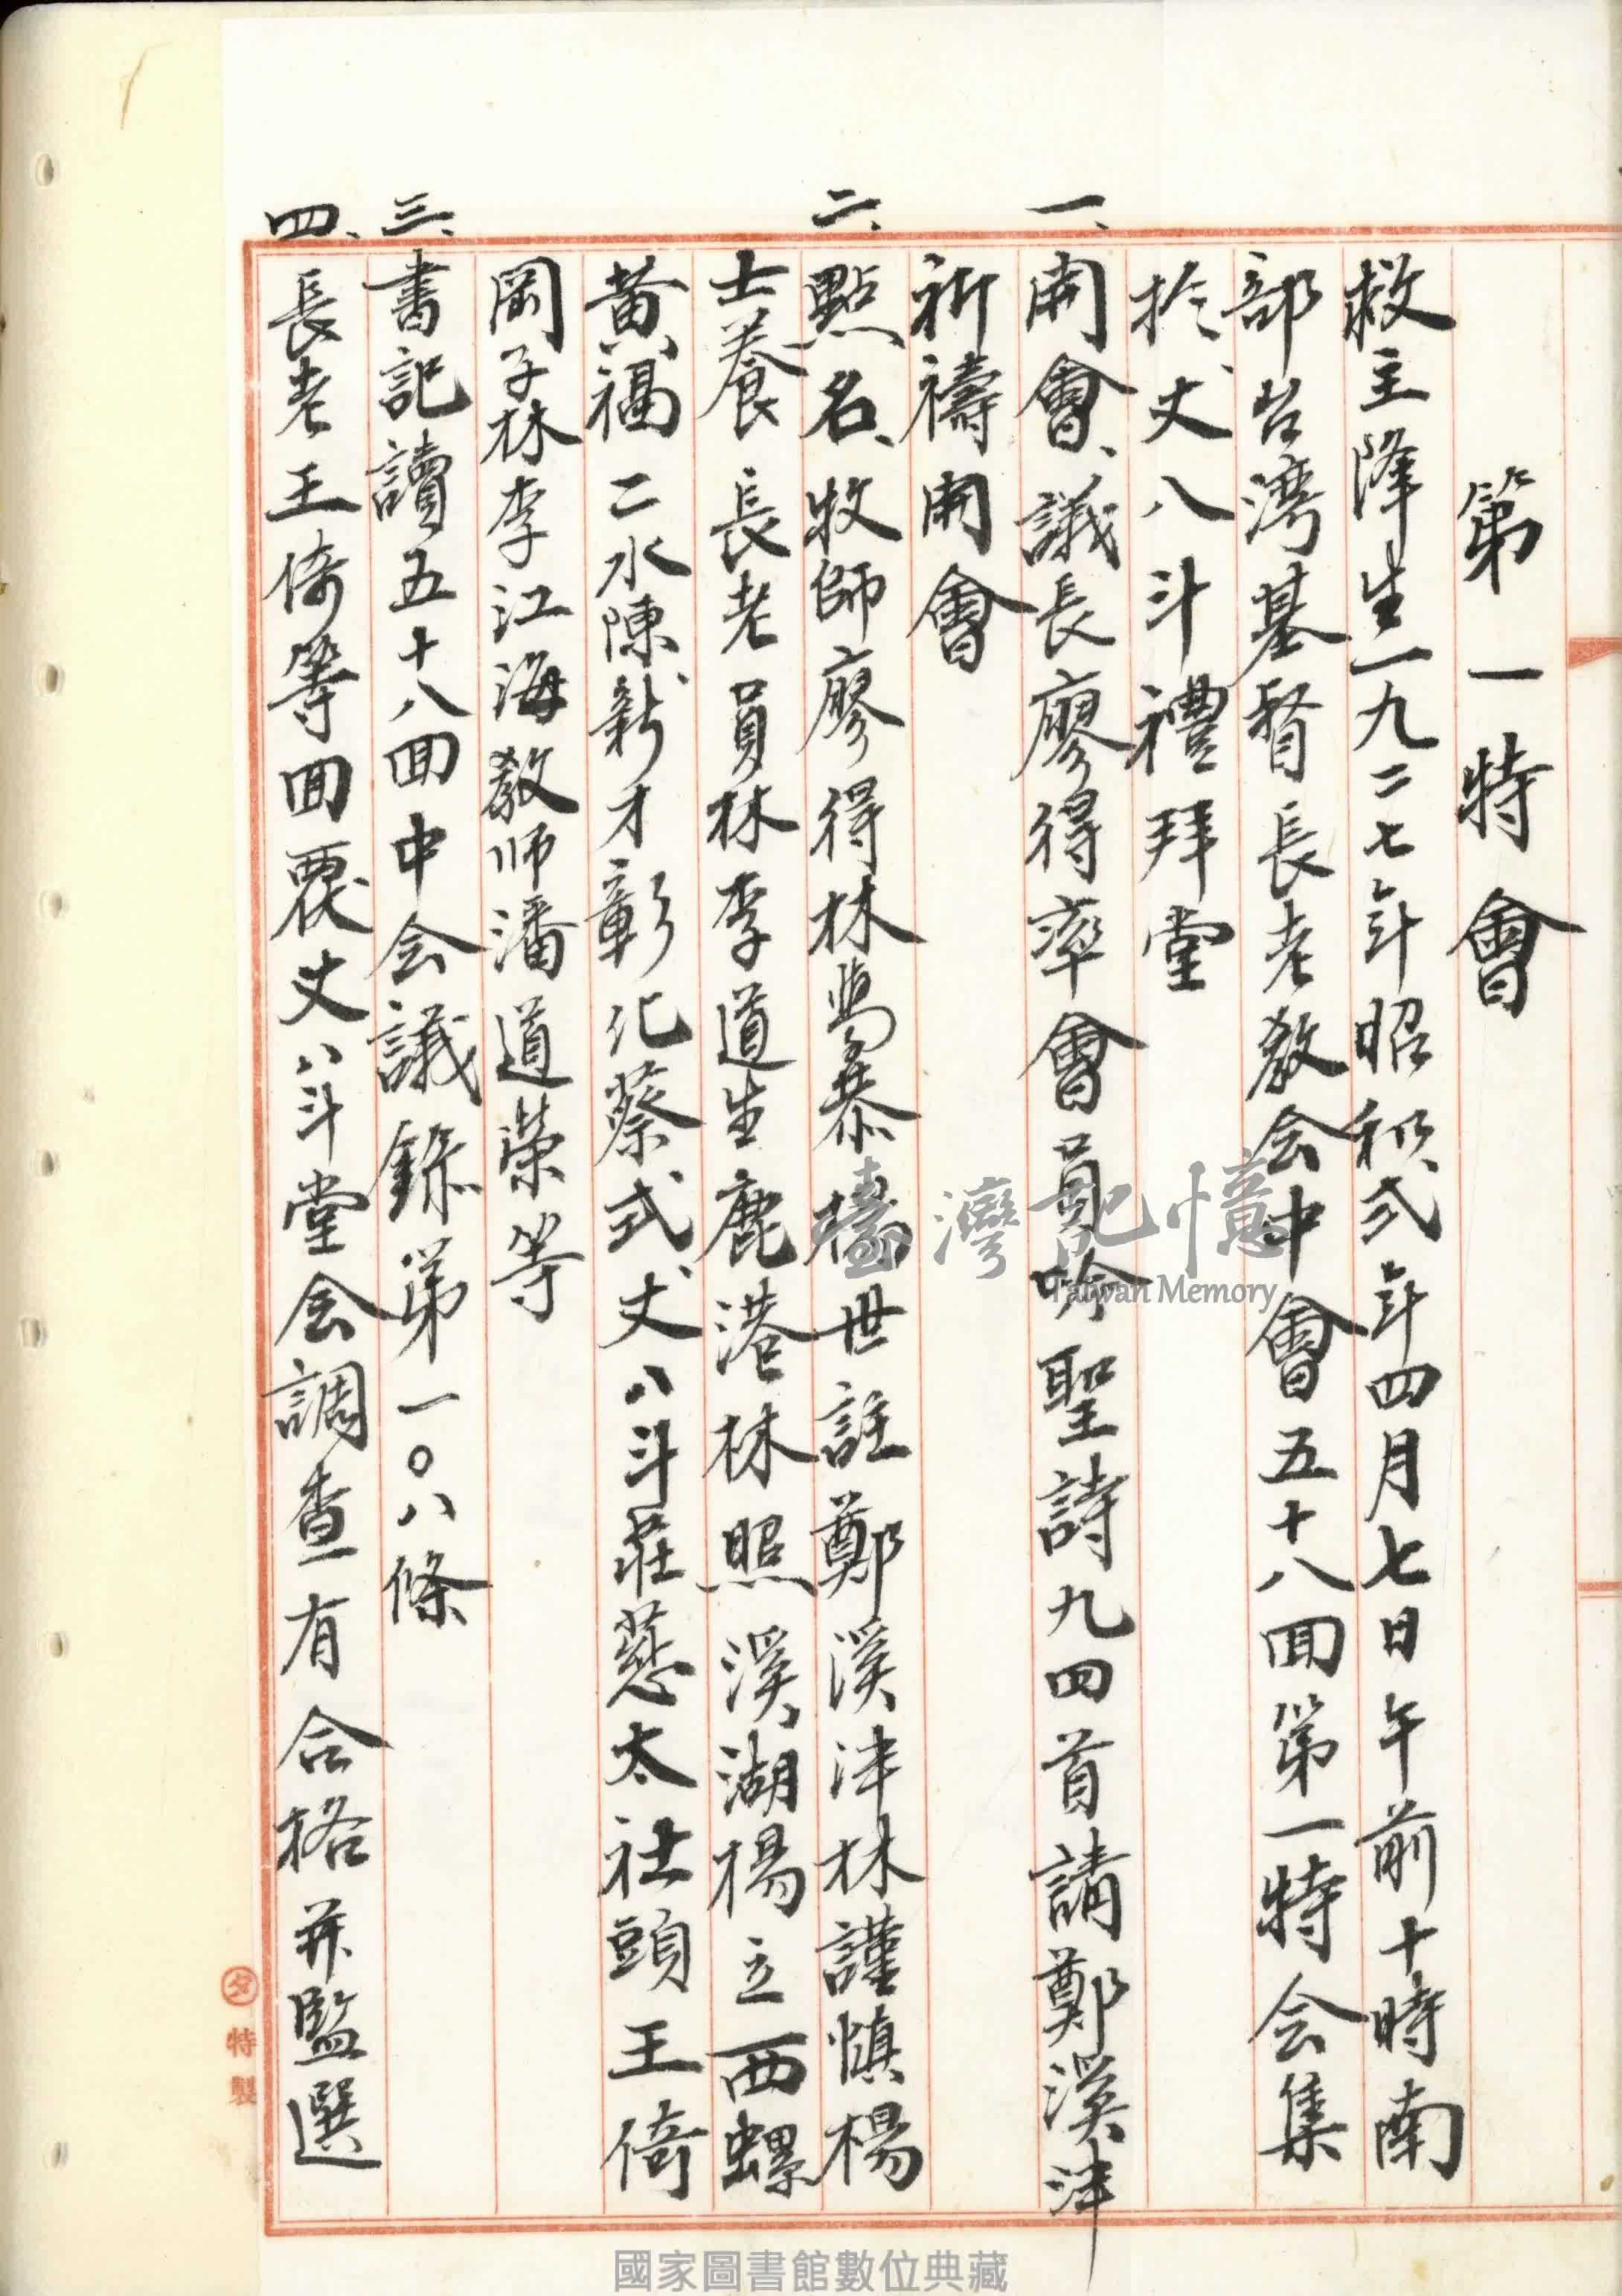 第一特會
救主降生一九二七年昭和弍年四月七日午前十時南
部台湾基督長老教会中會五十八囬第一特会集
於丈八斗禮拜堂
一、開會、議長廖得率會員吟聖詩九四首請鄭溪泮
祈禱開會
二、點名、牧師廖得林燕臣 世註鄭溪泮林謹慎楊
士養 長老 員林李道生鹿港林照 溪湖楊立 西螺
黄福 二水陳新才彰化蔡式丈八斗莊慈太社頭王倚
岡子林李江海教师潘道榮等
三、書記讀五十八囬中会議錄第一〇八條
四、長老王倚等囬覆丈八斗堂会調查有合格并監選
臺灣記憶
Taiwan Memory
タ特製
國家圖書館數位典藏